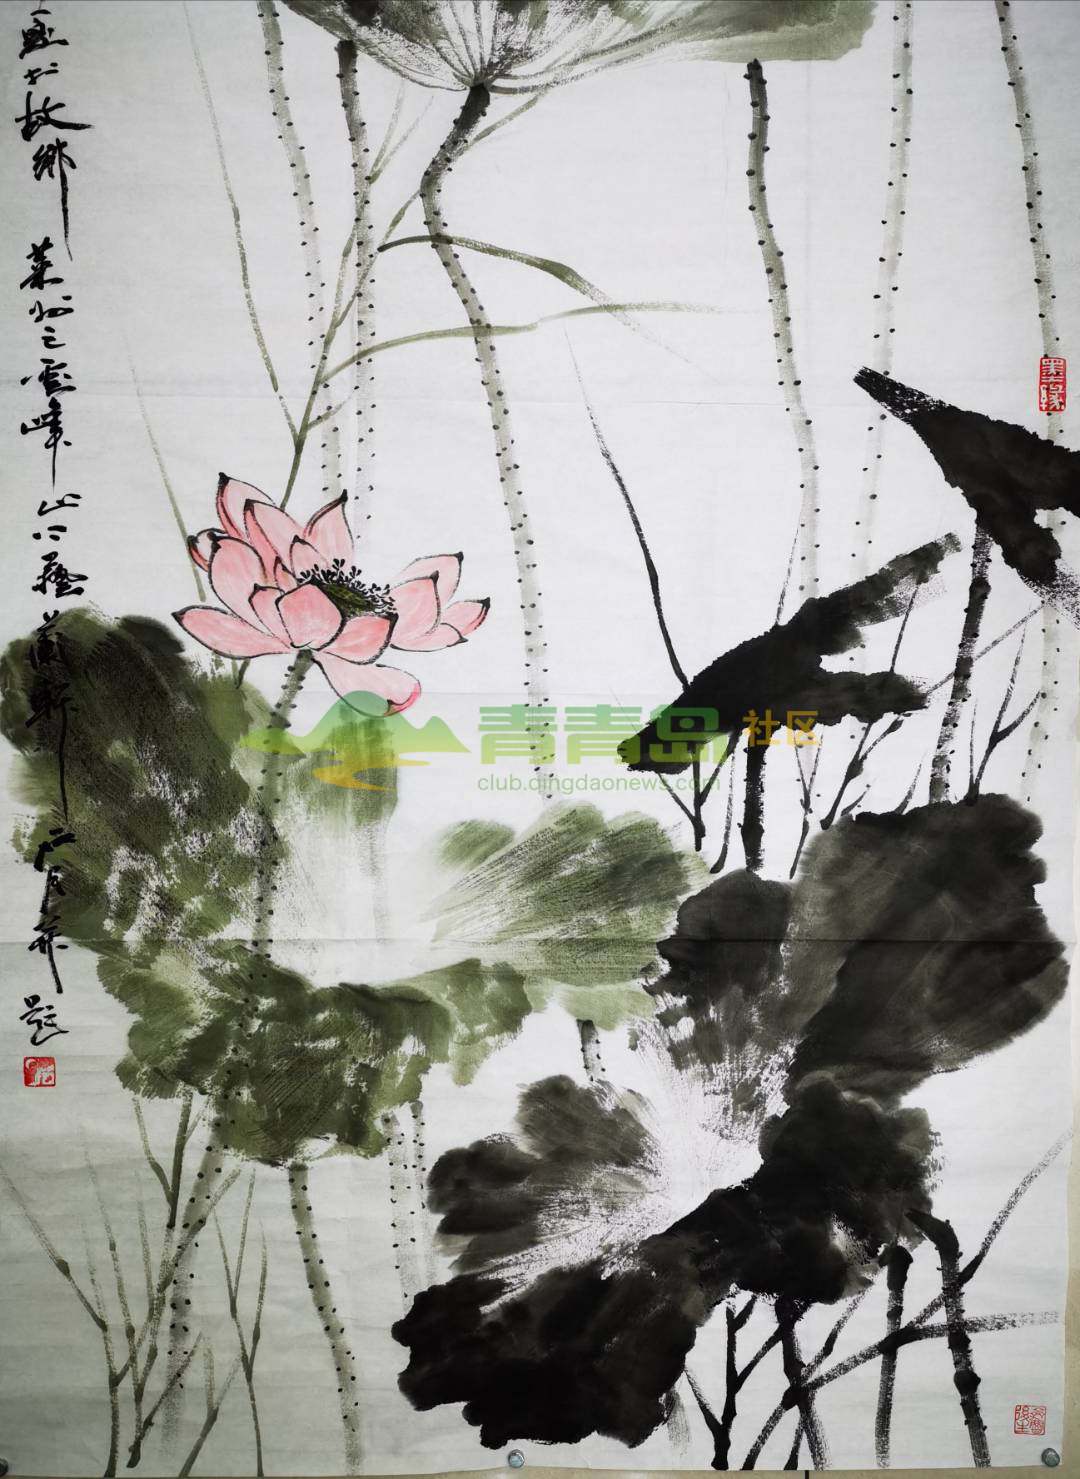 故鄉 莱州之雲峰山下藝蘭軒 題
墨缘
青青岛社区
club.qingdaonews.com